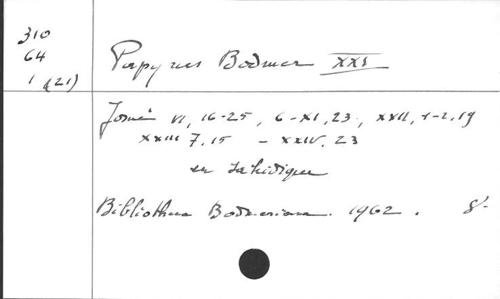 310
64
1 (21)
Papyrus Bodmer XXI
Josué VI, 16-25, 6-XI, 23, XXII, 1-2, 19
XXIII 7, 15 - XXIV, 23
en sahidique
Bibliotheca Bodmeriana. 1962. 8°